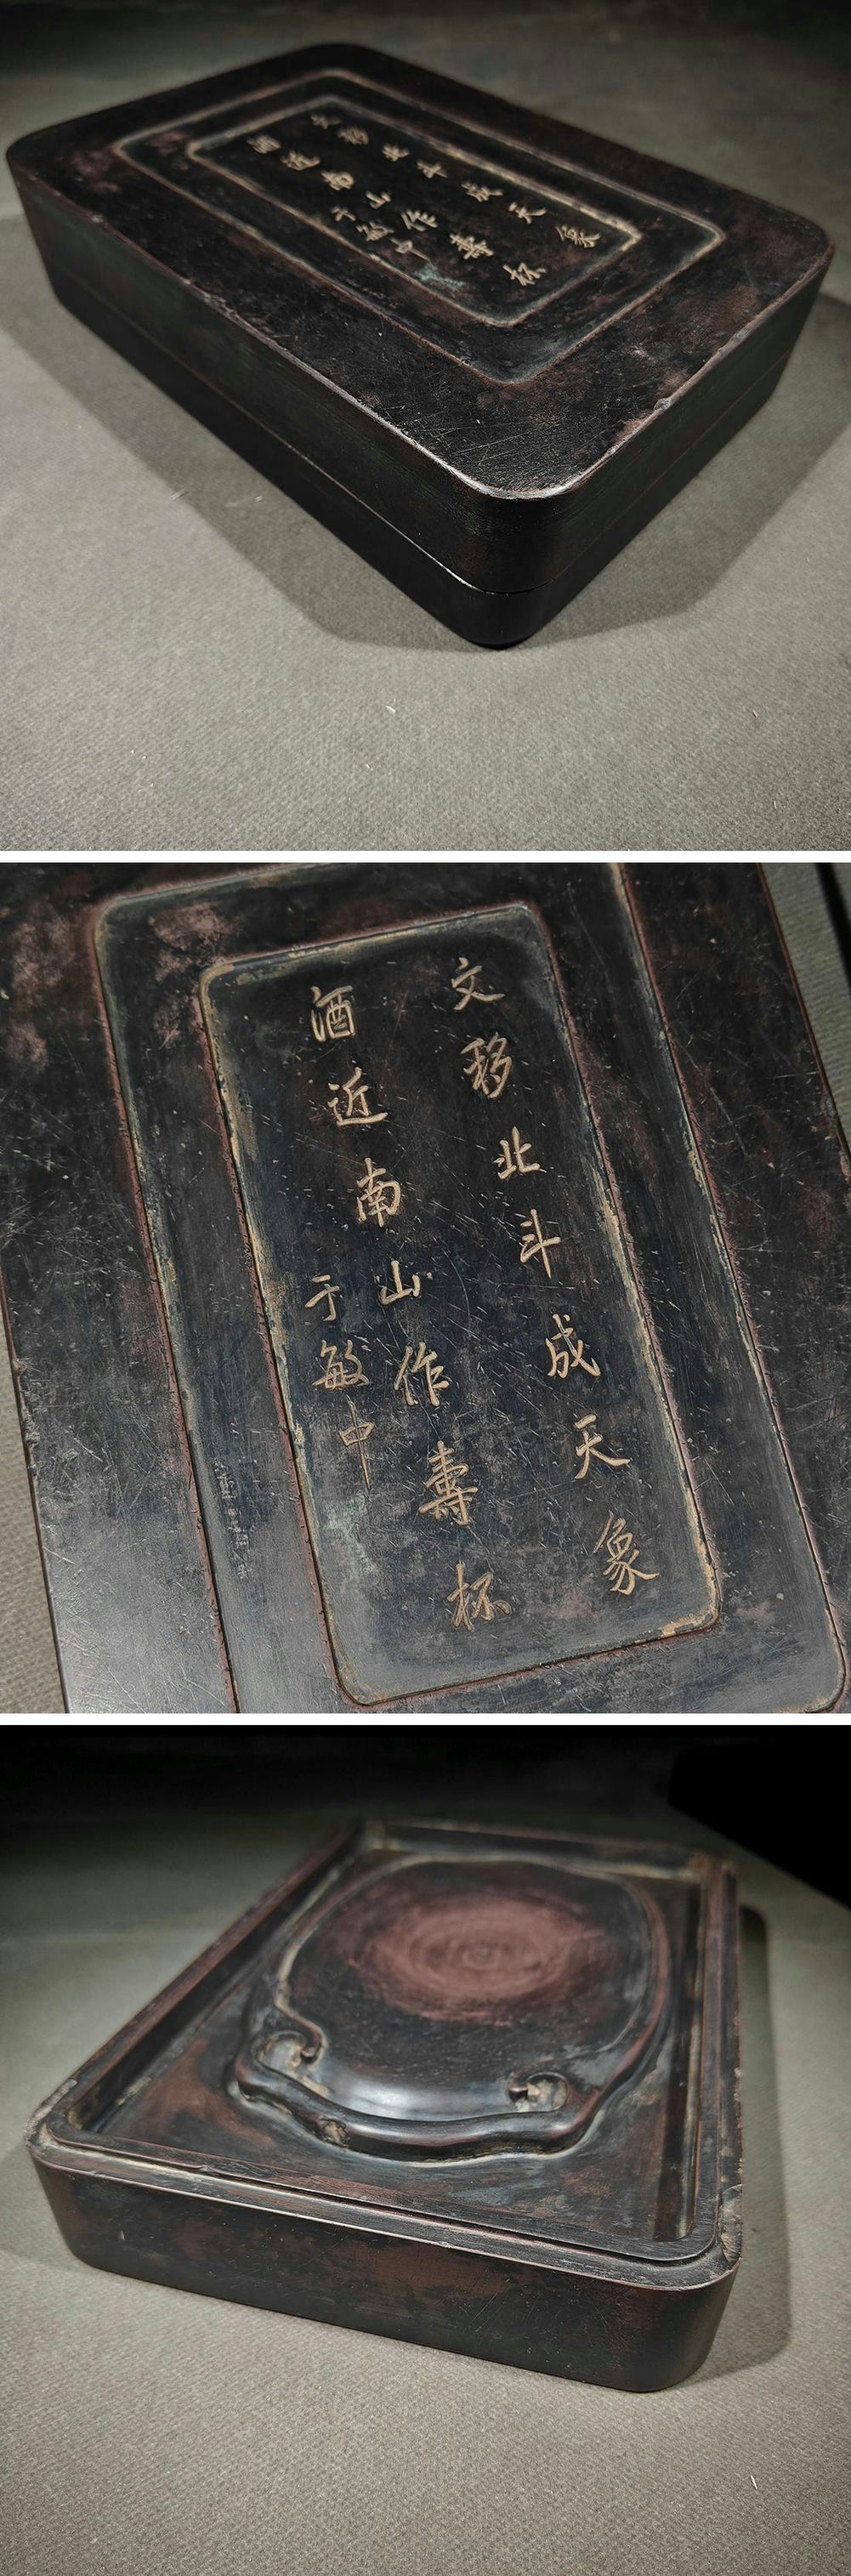 文移北斗成天象
酒近南山作壽杯
于敏中
文移北斗成天象
酒近南山作壽杯
于敏中